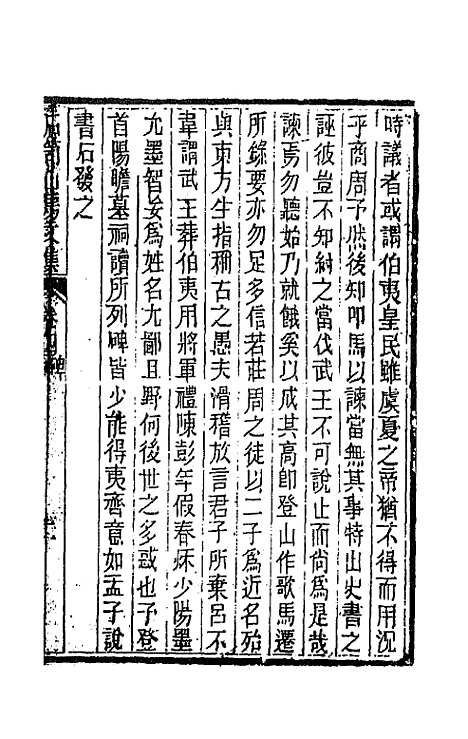 時議者或謂伯夷皇民雖虞夏之帝猶不得而用況
乎商周予然後知叩馬以諫當無其事特出史書之
誣彼豈不知紂之當伐武王不可說止而尚爲是哉
諫焉勿聽始乃就餓奚以成其高即登山作歌馬遷
所錄要亦勿足多信若莊周之徒以二子爲近名殆
與東方生指稱古之愚夫滑稽放言君子所棄呂不
韋謂武王葬伯夷用將軍禮陳彭年假春秋少陽墨
允墨智妄爲姓名尤鄙且野何後世之多惑也予登
首陽瞻墓祠讀所列碑皆少能得夷齊意如孟子說
書石發之
文集 碑